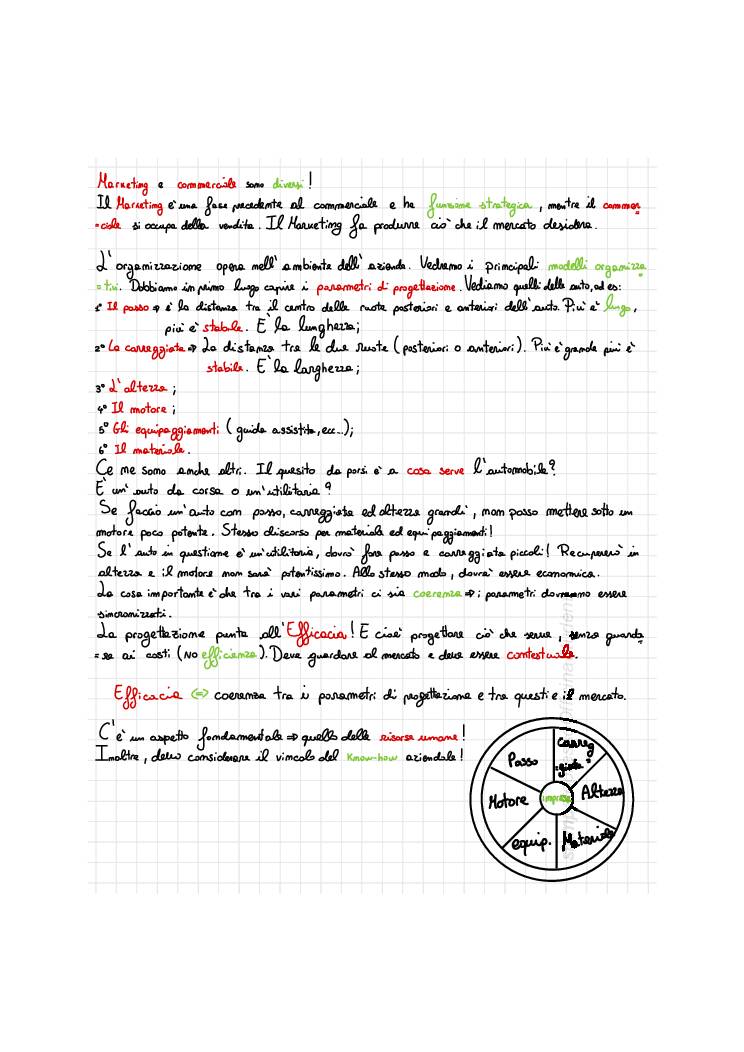 Marketing e commerciale sono diversi!
Il Marketing è una fase precedente al commerciale e ha funzione strategica, mentre il commer
=ciale si occupa della vendita. Il Marketing fa produrre ciò che il mercato desidera.
L'organizzazione opera nell'ambiente dell'azienda. Vediamo i principali modelli organizza
=tivi. Dobbiamo in primo luogo capire i parametri di progettazione. Vediamo quelli delle auto, ad es:
1° Il passo ⇒ è la distanza tra il centro delle ruote posteriori e anteriori dell'auto. Più è lungo,
più è stabile. È la lunghezza;
2° La carreggiata ⇒ La distanza tra le due ruote (posteriori o anteriori). Più è grande più è
stabile. È la larghezza;
3° L'altezza;
4° Il motore;
5° Gli equipaggiamenti (guida assistita, ecc...);
6° Il materiale.
Ce ne sono anche altri. Il quesito da porsi è a cosa serve l'automobile?
È un'auto da corsa o un'utilitaria?
Se faccio un'auto con passo, carreggiata ed altezza grandi, non posso mettere sotto un
motore poco potente. Stesso discorso per materiale ed equipaggiamenti!
Se l'auto in questione è un'utilitaria, dovrò fare passo e carreggiata piccoli! Recupererò in
altezza e il motore non sarà potentissimo. Allo stesso modo, dovrà essere economica.
La cosa importante è che tra i vari parametri ci sia coerenza ⇒ i parametri dovranno essere
sincronizzati.
La progettazione punta all'Efficacia! E cioè progettare ciò che serve, senza guarda
=re ai costi (NO efficienza). Deve guardare al mercato e deve essere contestuale.
Efficacia ⇔ coerenza tra i parametri di progettazione e tra questi e il mercato.
C'è un aspetto fondamentale ⇒ quello delle risorse umane!
Inoltre, devo considerare il vincolo del Know-how aziendale!
Passo
Carreg
=giata
Motore
impresa
Altezza
equip.
Materiale